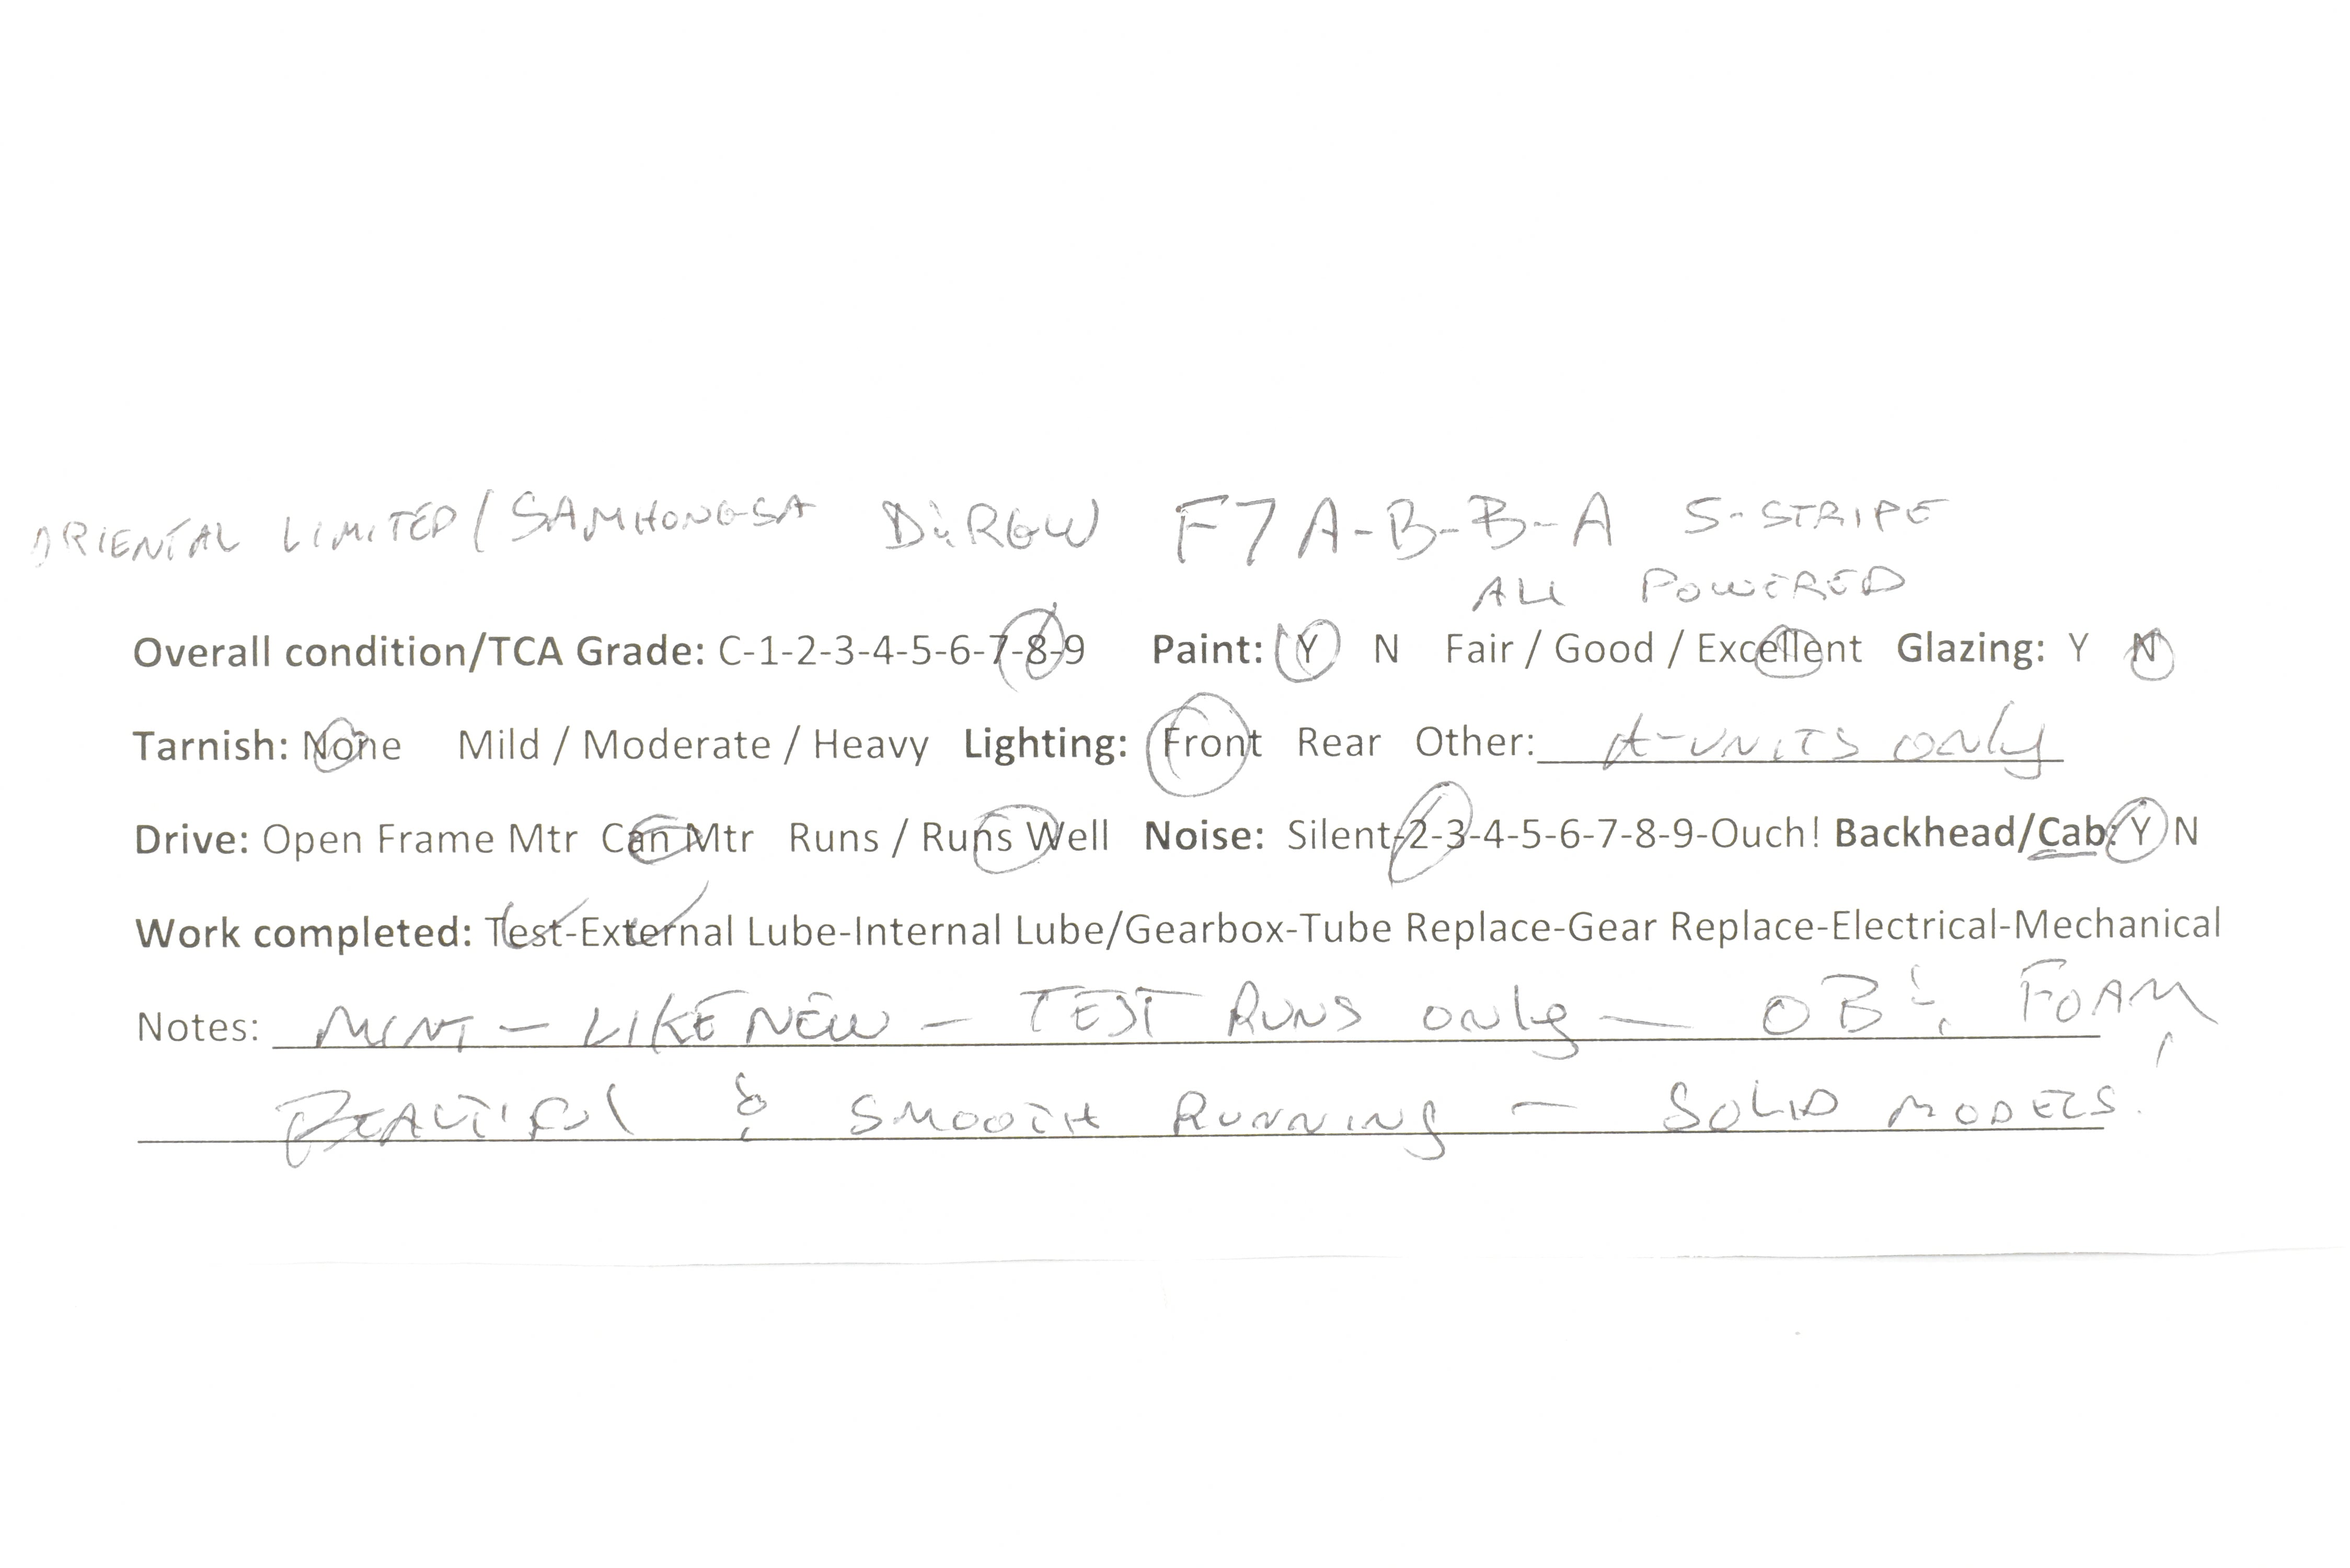 ORIENTAL LIMITED/SAMHONGSA D&RGW F7 A-B-B-A S-STRIPE
ALL POWERED
Overall condition/TCA Grade: C-1-2-3-4-5-6-7-8-9 Paint: Y N Fair / Good / Excellent Glazing: Y N
Tarnish: None Mild / Moderate / Heavy Lighting: Front Rear Other: A-UNITS ONLY
Drive: Open Frame Mtr Can Mtr Runs / Runs Well Noise: Silent-2-3-4-5-6-7-8-9-Ouch! Backhead/Cab: Y N
Work completed: Test-External Lube-Internal Lube/Gearbox-Tube Replace-Gear Replace-Electrical-Mechanical
Notes: MINT - LIKE NEW - TEST RUNS ONLY - OB & FOAM
BEAUTIFUL & SMOOTH RUNNING - SOLID MODELS!